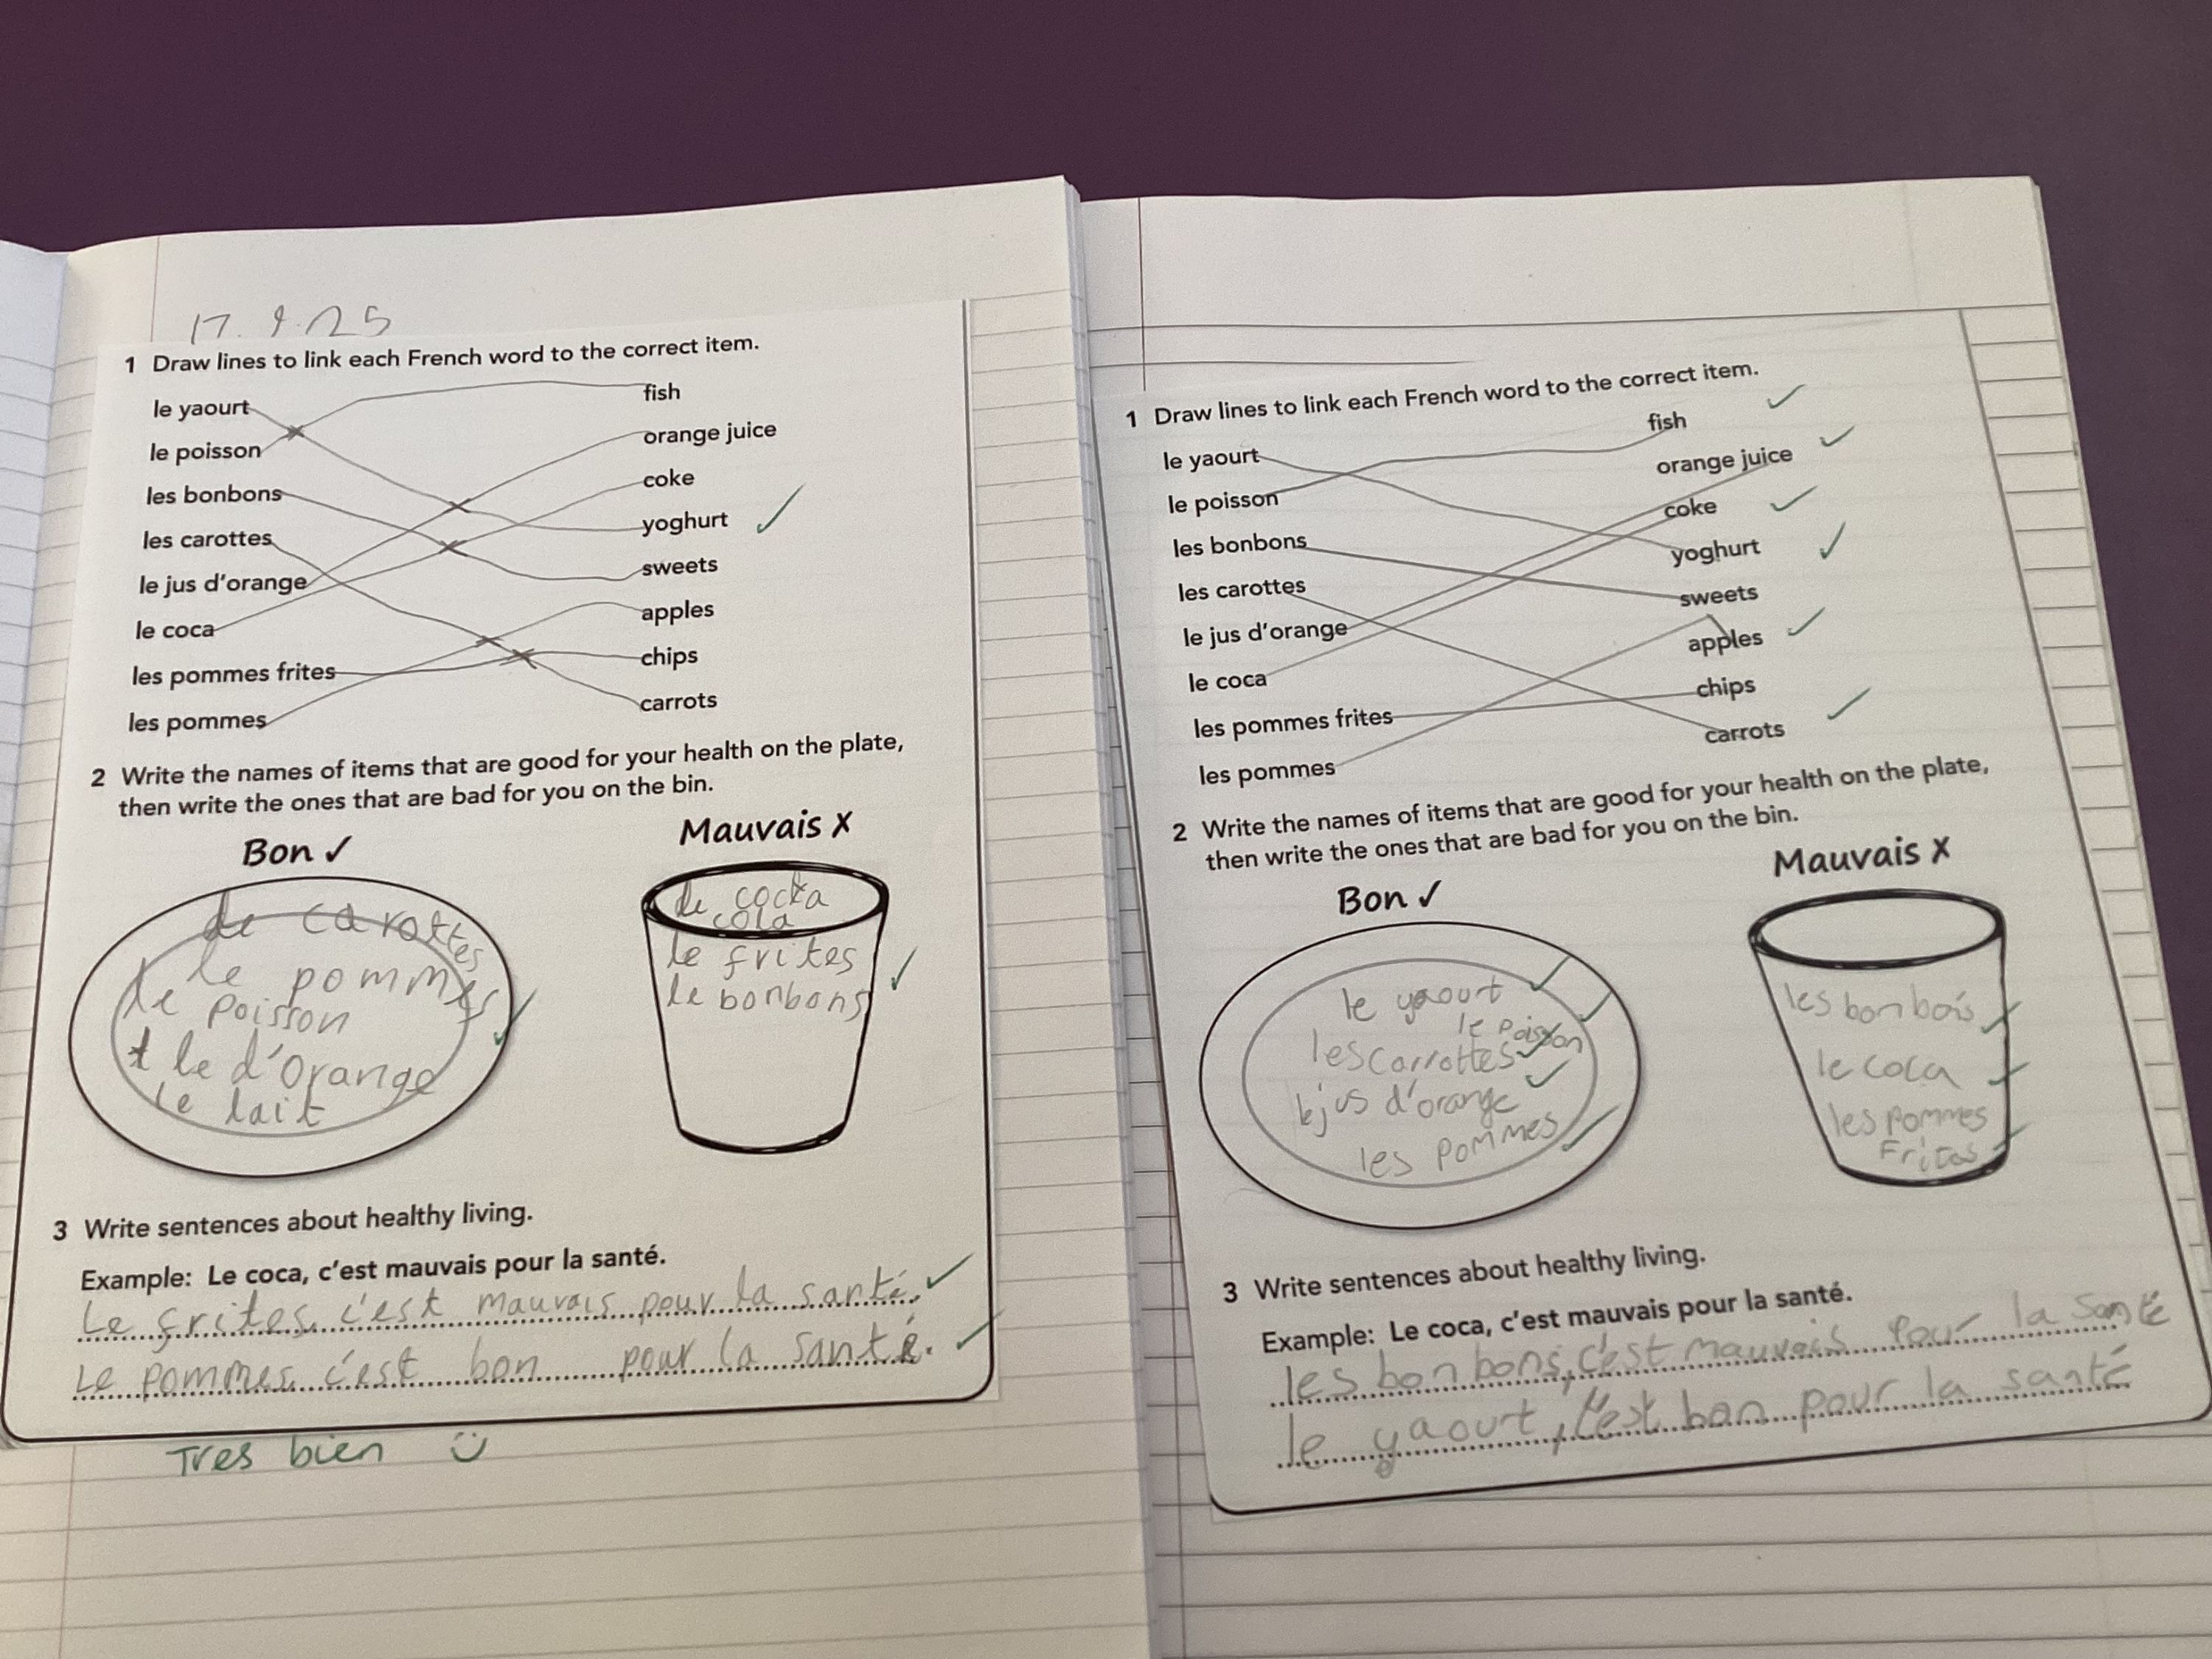 17.9.25
1 Draw lines to link each French word to the correct item.
le yaourt
le poisson
les bonbons
les carottes
le jus d'orange
le coca
les pommes frites
les pommes
fish
orange juice
coke
yoghurt
sweets
apples
chips
carrots
2 Write the names of items that are good for your health on the plate,
then write the ones that are bad for you on the bin.
Bon ✓
Mauvais X
le carottes
le pommes
le poisson
le d'orange
le lait
le cocka
cola
le frites
le bonbons
3 Write sentences about healthy living.
Example: Le coca, c'est mauvais pour la santé.
Le frites, c'est mauvais pour la santé.
Le pommes, c'est bon pour la santé.
Tres bien
1 Draw lines to link each French word to the correct item.
le yaourt
le poisson
les bonbons
les carottes
le jus d'orange
le coca
les pommes frites
les pommes
fish
orange juice
coke
yoghurt
sweets
apples
chips
carrots
2 Write the names of items that are good for your health on the plate,
then write the ones that are bad for you on the bin.
Bon ✓
Mauvais X
le yaourt
le poisson
les carrottes
le jus d'orange
les pommes
les bonbois
le coca
les pommes
frites
3 Write sentences about healthy living.
Example: Le coca, c'est mauvais pour la santé.
les bonbons, c'est mauvais pour la santé
le yaourt, c'est bon pour la santé